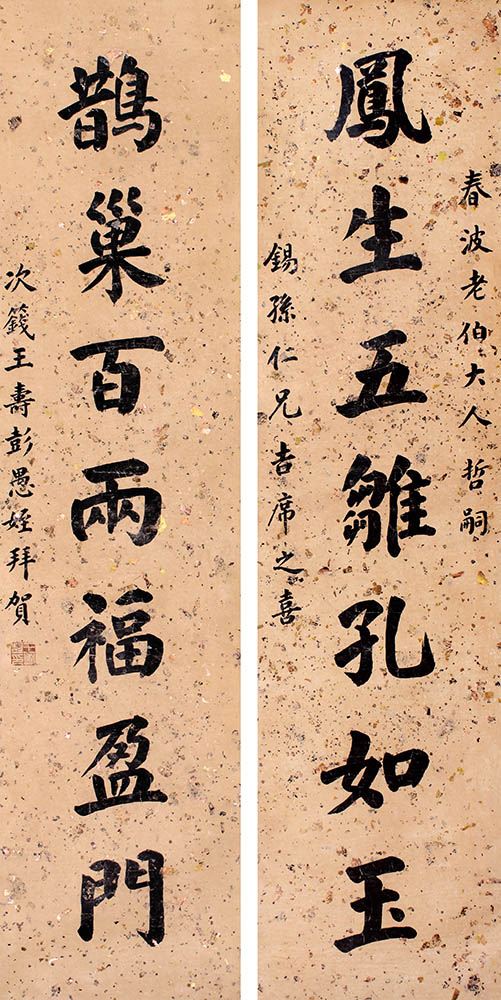 春波老伯大人哲嗣
鳳生五雛孔如玉
錫孫仁兄吉席之喜
鵲巢百兩福盈門
次籛王壽彭愚姪拜賀